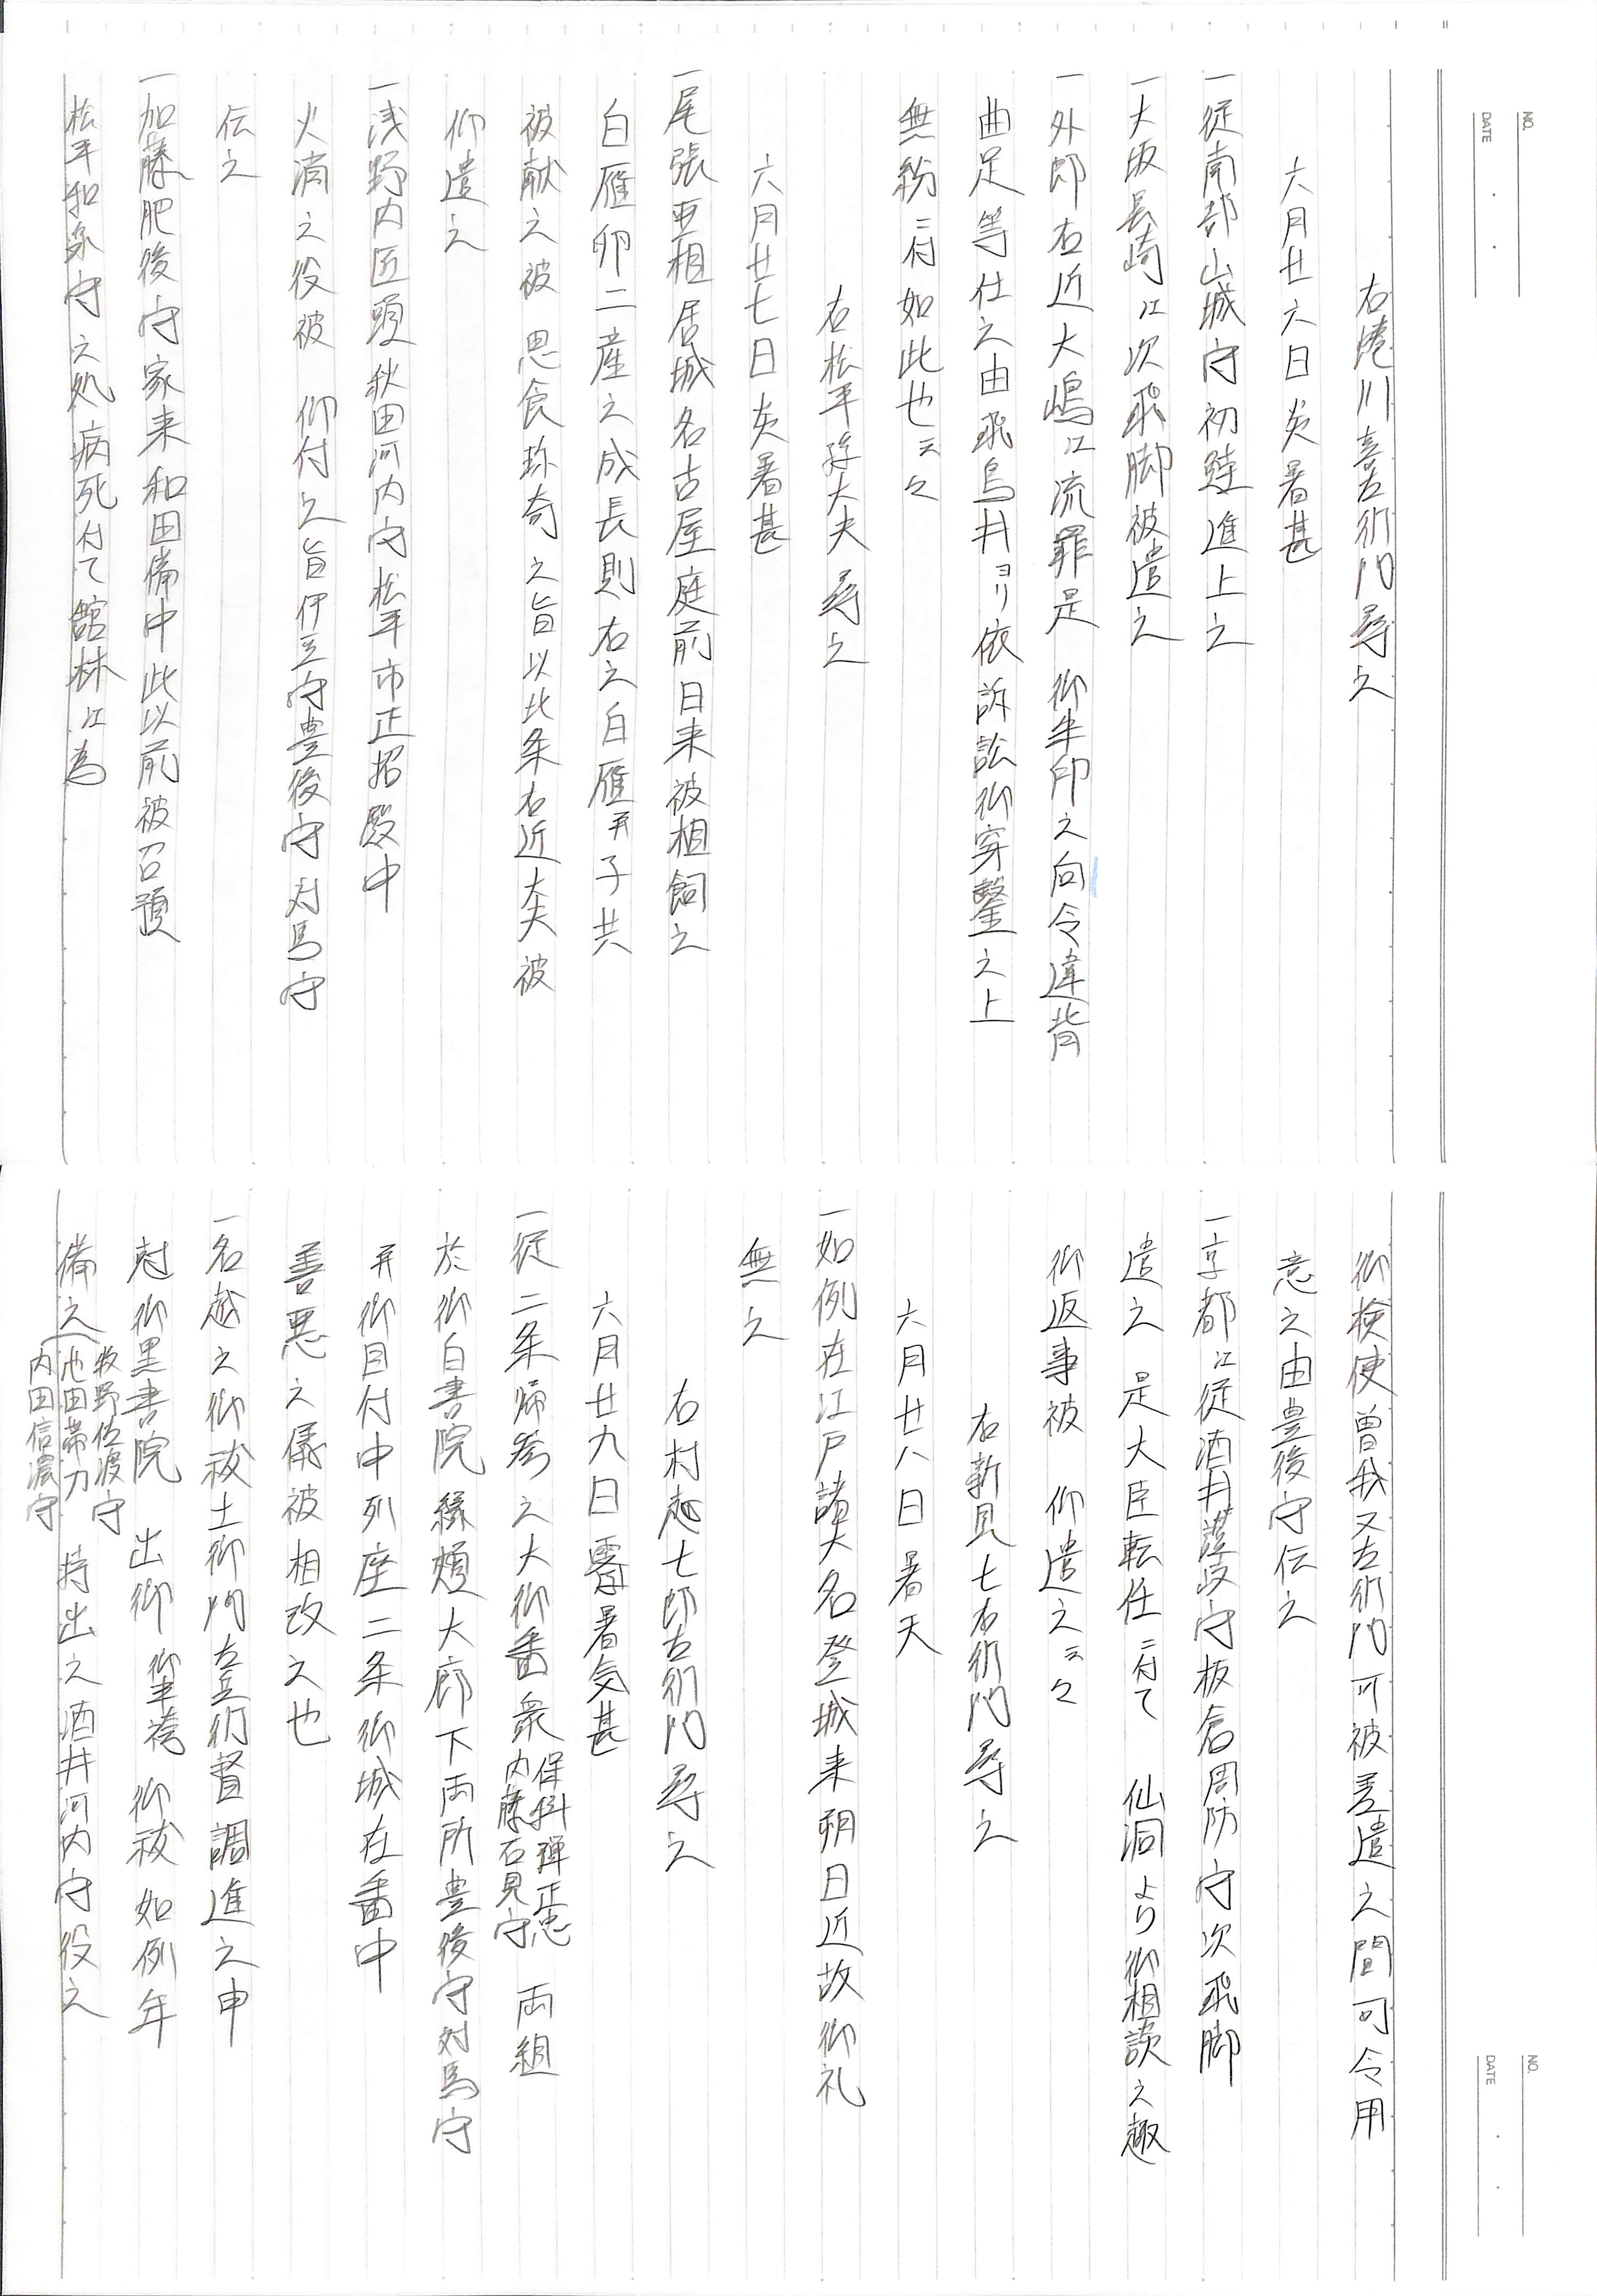 NO.
DATE
右滝川喜右衛門尋之
六月廿六日炎暑甚
一従南部山城守初鮭進上之
一大坂長崎江次飛脚被遣之
一外郎右近大嶋江流罪是 御朱印之向令違背
曲足等仕之由飛鳥井ヨリ依訴訟御穿鑿之上
無紛ニ付如此也云々
右松平孫大夫尋之
六月廿七日炎暑甚
一尾張亜相居城名古屋庭前日来被相飼之
白雁卵二産之成長則右之白雁并子共
被献之被 思食珎奇之旨以此条右近大夫被
仰遣之
一浅野内匠頭秋田河内守松平市正招殿中
火消之役被 仰付之旨伊豆守豊後守対馬守
伝之
一加藤肥後守家来和田備中此以前被召預
松平和泉守之処病死付て館林江為
御検使曽我又左衛門可被差遣之間可令用
意之由豊後守伝之
一京都江従酒井讃岐守板倉周防守次飛脚
遣之 是大臣転任ニ付て 仙洞より御相談之趣
御返事被 仰遣之云々
右新見七右衛門尋之
六月廿八日暑天
一如例在江戸諸大名登城来朔日近故御礼
無之
右村越七郎左衛門尋之
六月廿九日 暑気甚
一従二条帰参之大御番衆保科弾正忠内藤石見守両組
於御白書院縁頬大廊下両所豊後守対馬守
并御目付中列座二条御城在番中
善悪之儀被相改之也
一名越之御祓土御門左兵衛督調進之申
刻御黒書院 出御 御半袴 御祓如例年
備之牧野佐渡守池田帯刀内田信濃守持出之酒井河内守役之
NO.
DATE